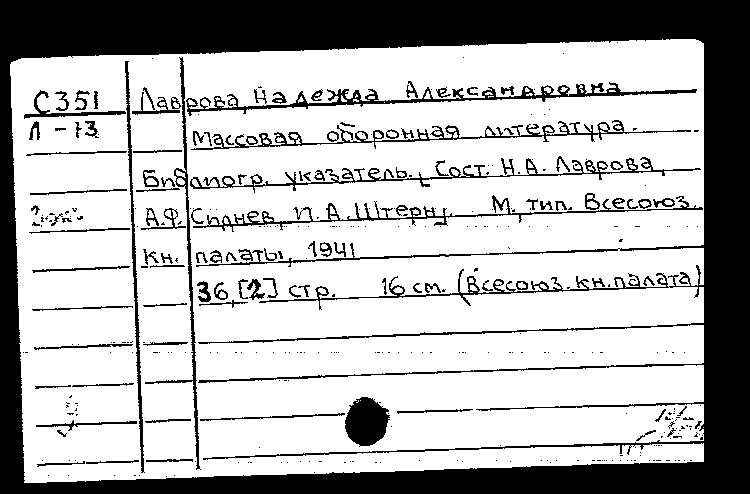 С351 Лаврова, Надежда Александровна
Л-73 Массовая оборонная литература.
Библиогр. указатель. [Сост. Н.А. Лаврова,
А.Ф. Сиднев, П.А. Штерн]. М., тип. Всесоюз.
кн. палаты, 1941
36, [2] стр. 16 см. (Всесоюз. кн. палата)